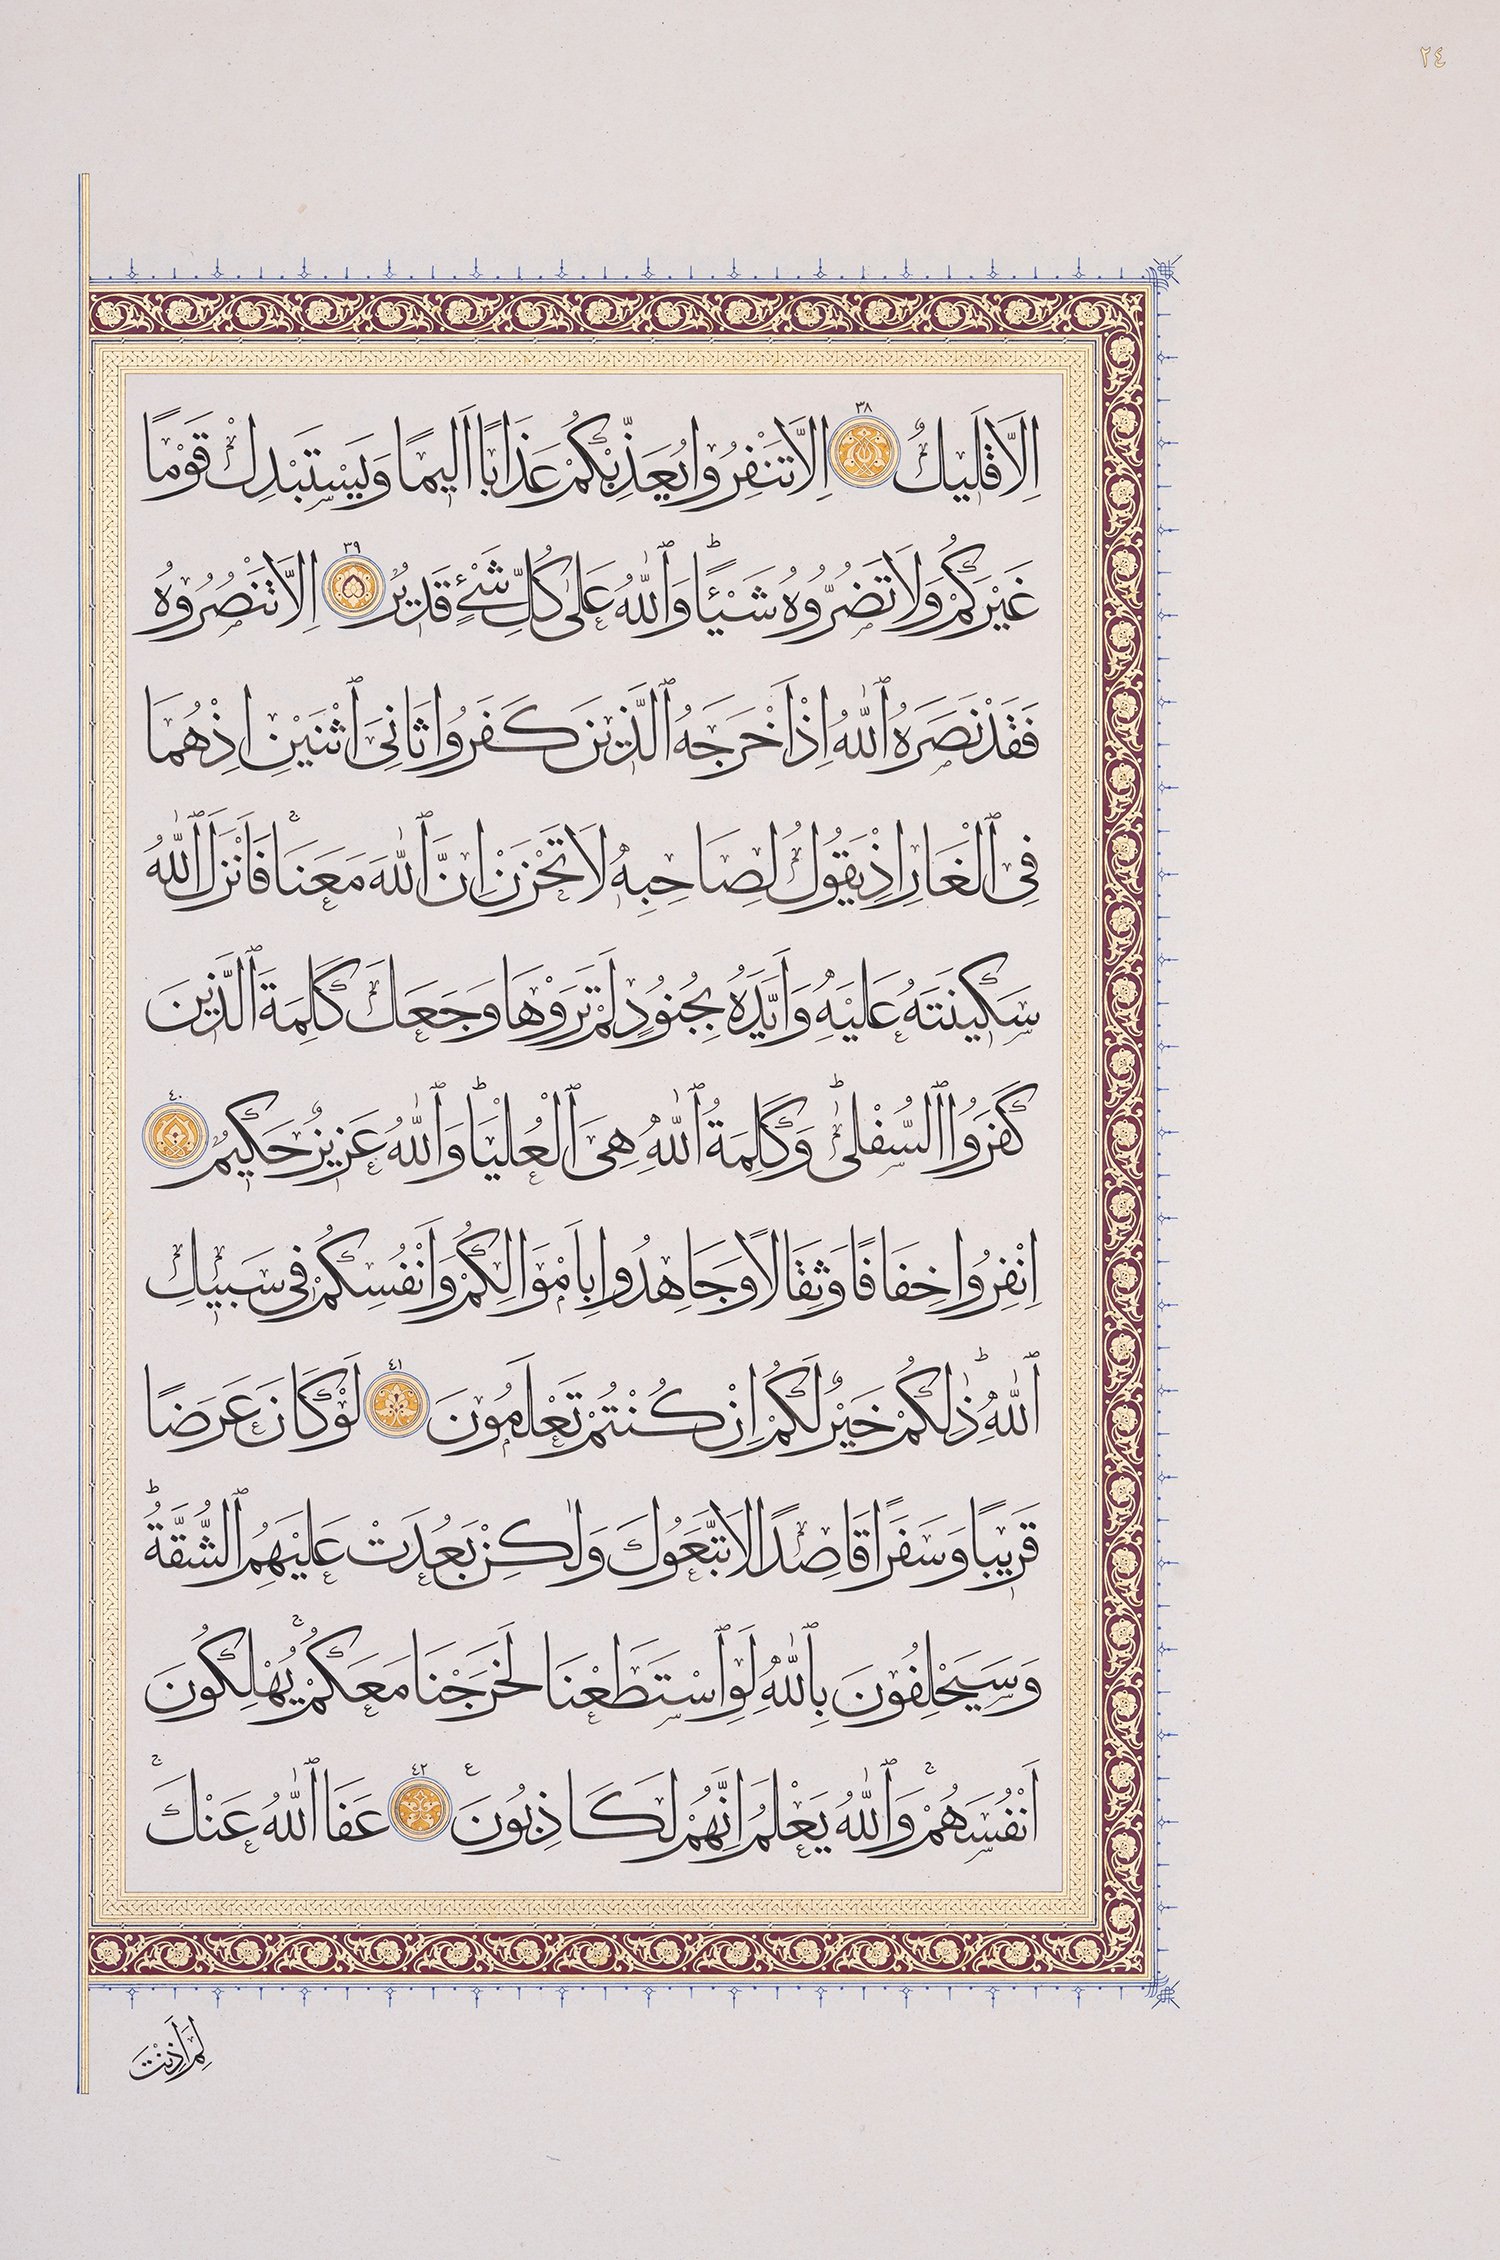 ٢٤
اِلَّا قَلٖيلٌ ٣٨ اِلَّا تَنْفِرُوا يُعَذِّبْكُمْ عَذَابًا اَلٖيمًا وَيَسْتَبْدِلْ قَوْمًا
غَيْرَكُمْ وَلَا تَضُرُّوهُ شَيْـًٔاؕ وَٱللّٰهُ عَلٰى كُلِّ شَىْءٍ قَدٖيرٌ ٣٩ اِلَّا تَنْصُرُوهُ
فَقَدْ نَصَرَهُ ٱللّٰهُ اِذْ اَخْرَجَهُ ٱلَّذٖينَ كَفَرُوا ثَانِىَ ٱثْنَيْنِ اِذْ هُمَا
فِى ٱلْغَارِ اِذْ يَقُولُ لِصَاحِبِهٖ لَا تَحْزَنْ اِنَّ ٱللّٰهَ مَعَنَاۚ فَاَنْزَلَ ٱللّٰهُ
سَكٖينَتَهُ عَلَيْهِ وَاَيَّدَهُ بِجُنُودٍ لَمْ تَرَوْهَا وَجَعَلَ كَلِمَةَ ٱلَّذٖينَ
كَفَرُوا ٱلسُّفْلٰىؕ وَكَلِمَةُ ٱللّٰهِ هِىَ ٱلْعُلْيَاؕ وَٱللّٰهُ عَزٖيزٌ حَكٖيمٌ ٤٠
اِنْفِرُوا خِفَافًا وَثِقَالًا وَجَاهِدُوا بِاَمْوَالِكُمْ وَاَنْفُسِكُمْ فٖى سَبٖيلِ
ٱللّٰهِؕ ذٰلِكُمْ خَيْرٌ لَكُمْ اِنْ كُنْتُمْ تَعْلَمُونَ ٤١ لَوْ كَانَ عَرَضًا
قَرٖيبًا وَسَفَرًا قَاصِدًا لَاتَّبَعُوكَ وَلٰكِنْ بَعُدَتْ عَلَيْهِمُ ٱلشُّقَّةُؕ
وَسَيَحْلِفُونَ بِٱللّٰهِ لَوِ ٱسْتَطَعْنَا لَخَرَجْنَا مَعَكُمْۚ يُهْلِكُونَ
اَنْفُسَهُمْۚ وَٱللّٰهُ يَعْلَمُ اِنَّهُمْ لَكَاذِبُونَ ع ٤٢ عَفَا ٱللّٰهُ عَنْكَۚ
لِمَ اَذِنْتَ